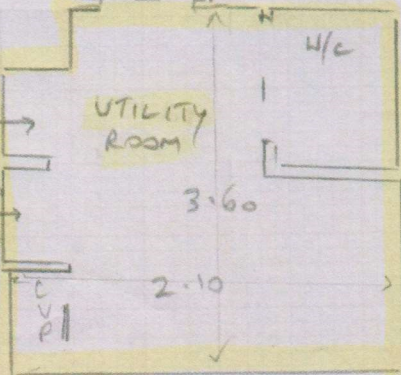 W/C
UTILITY
ROOM
3.60
2.10
C
V
P